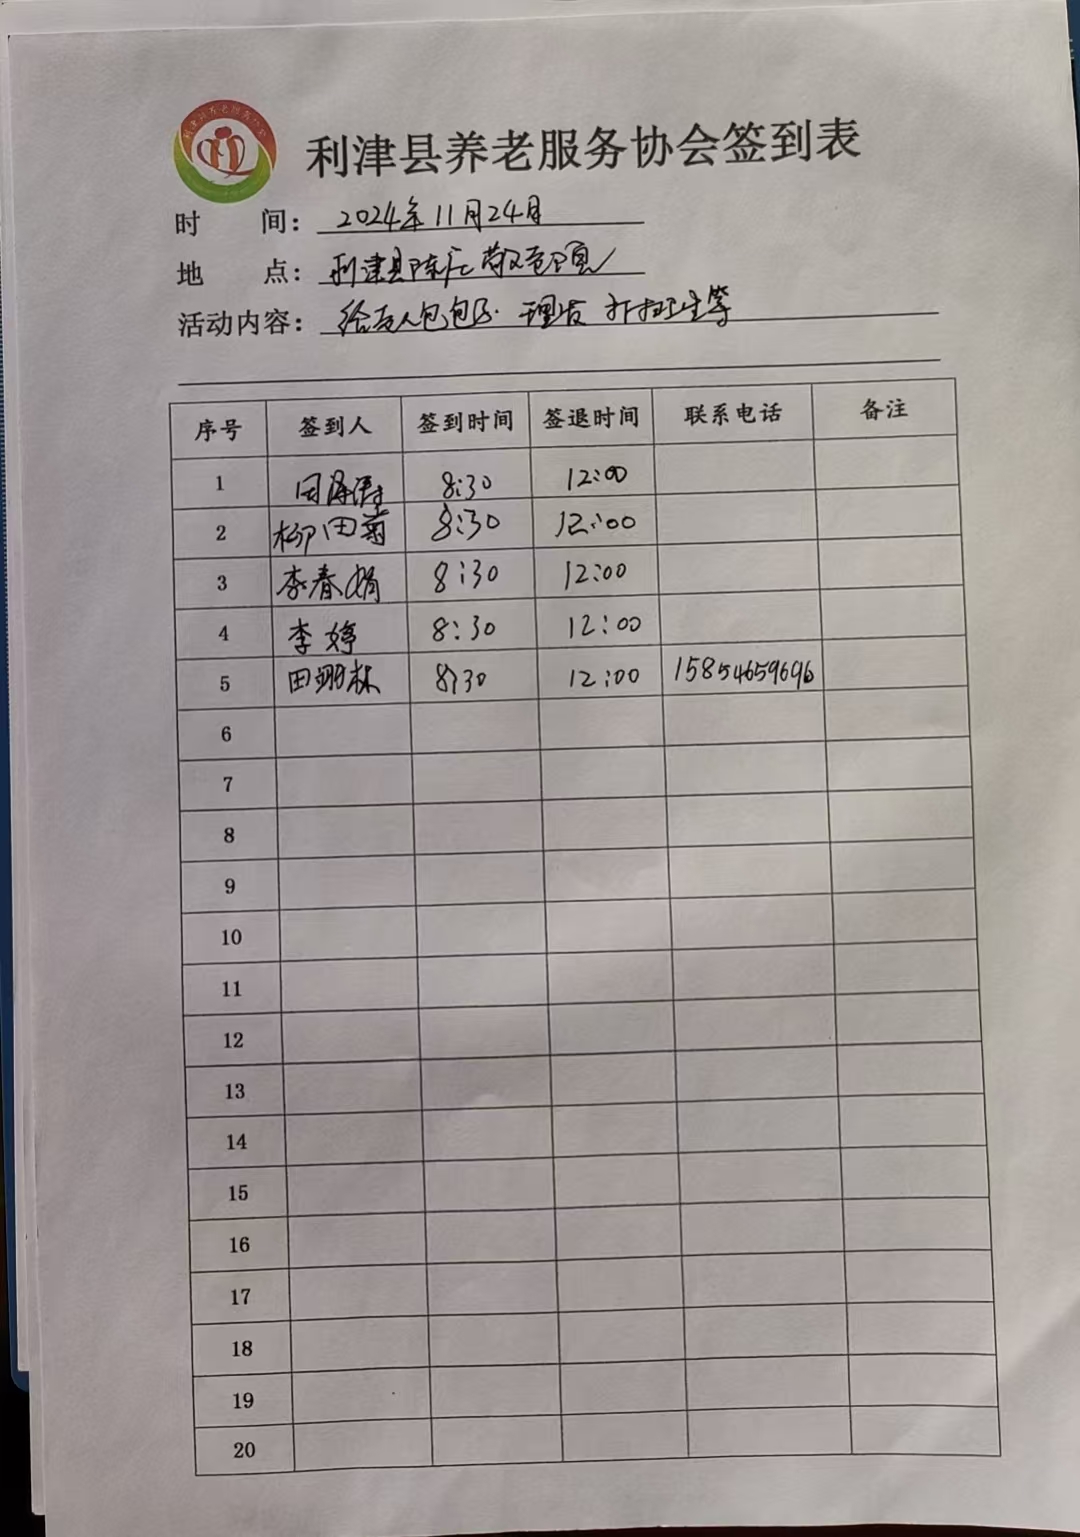 利津县养老服务协会签到表
时 间：2024年11月24日
地 点：利津县陈庄敬老院
活动内容：给老人包包子、理发 打扫卫生等
序号 签到人 签到时间 签退时间 联系电话 备注
1 8:30 12:00
2 柳田菊 8:30 12:00
3 李春娟 8:30 12:00
4 李婷 8:30 12:00
5 田翊林 8:30 12:00 15854659696
6
7
8
9
10
11
12
13
14
15
16
17
18
19
20